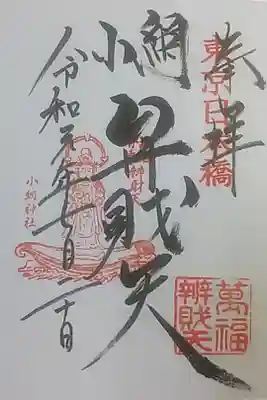 奉拝
東京日本橋
小網
弁財天
萬福
辨財天
令和元年七月二十日
小網神社